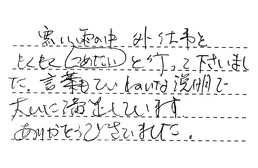 寒い雨の中 外仕事を
もくもく(つめたい)と行って下さいまし
た。言葉もていねいな説明で
大いに満足しています
ありがとうございました。